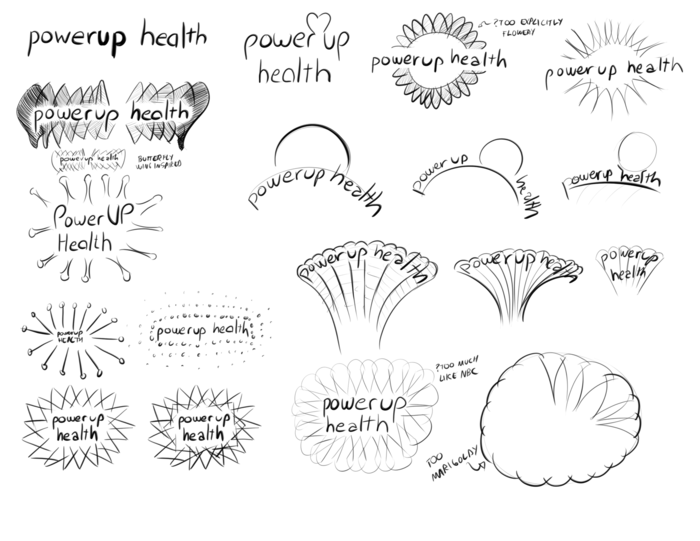 powerup health
power up
health
? TOO EXPLICITLY
FLOWERY
powerup health
power up health
powerup health
powerup health
BUTTERFLY
WING INSPIRED
PowerUP
Health
powerup health
power up
health
powerup health
powerup health
powerup health
powerup
health
POWERUP
HEALTH
powerup health
? TOO MUCH
LIKE NBC
power up
health
power up
health
powerup
health
TOO
MARIGOLDY